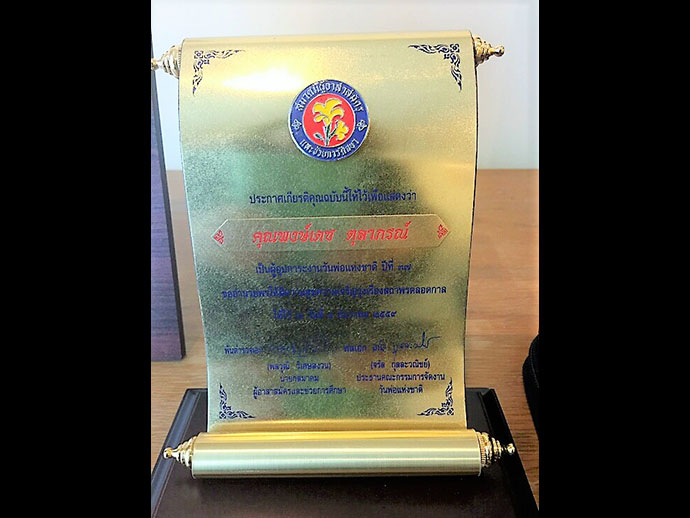 สมาคมผู้อาสาสมัคร
และช่วยการศึกษา
ประกาศเกียรติคุณฉบับนี้ให้ไว้เพื่อแสดงว่า
คุณพงษ์เดช ตุลาภรณ์
เป็นผู้อุปการะงานวันพ่อแห่งชาติ ปีที่ ๓๗
ขออำนวยพรให้มีความสุขความเจริญรุ่งเรืองสถาพรตลอดกาล
ให้ไว้ ณ วันที่ ๒๕๕๙
พันตำรวจเอก พลเอก
นายกสมาคม ประธานคณะกรรมการจัดงาน
ผู้อาสาสมัครและช่วยการศึกษา วันพ่อแห่งชาติ